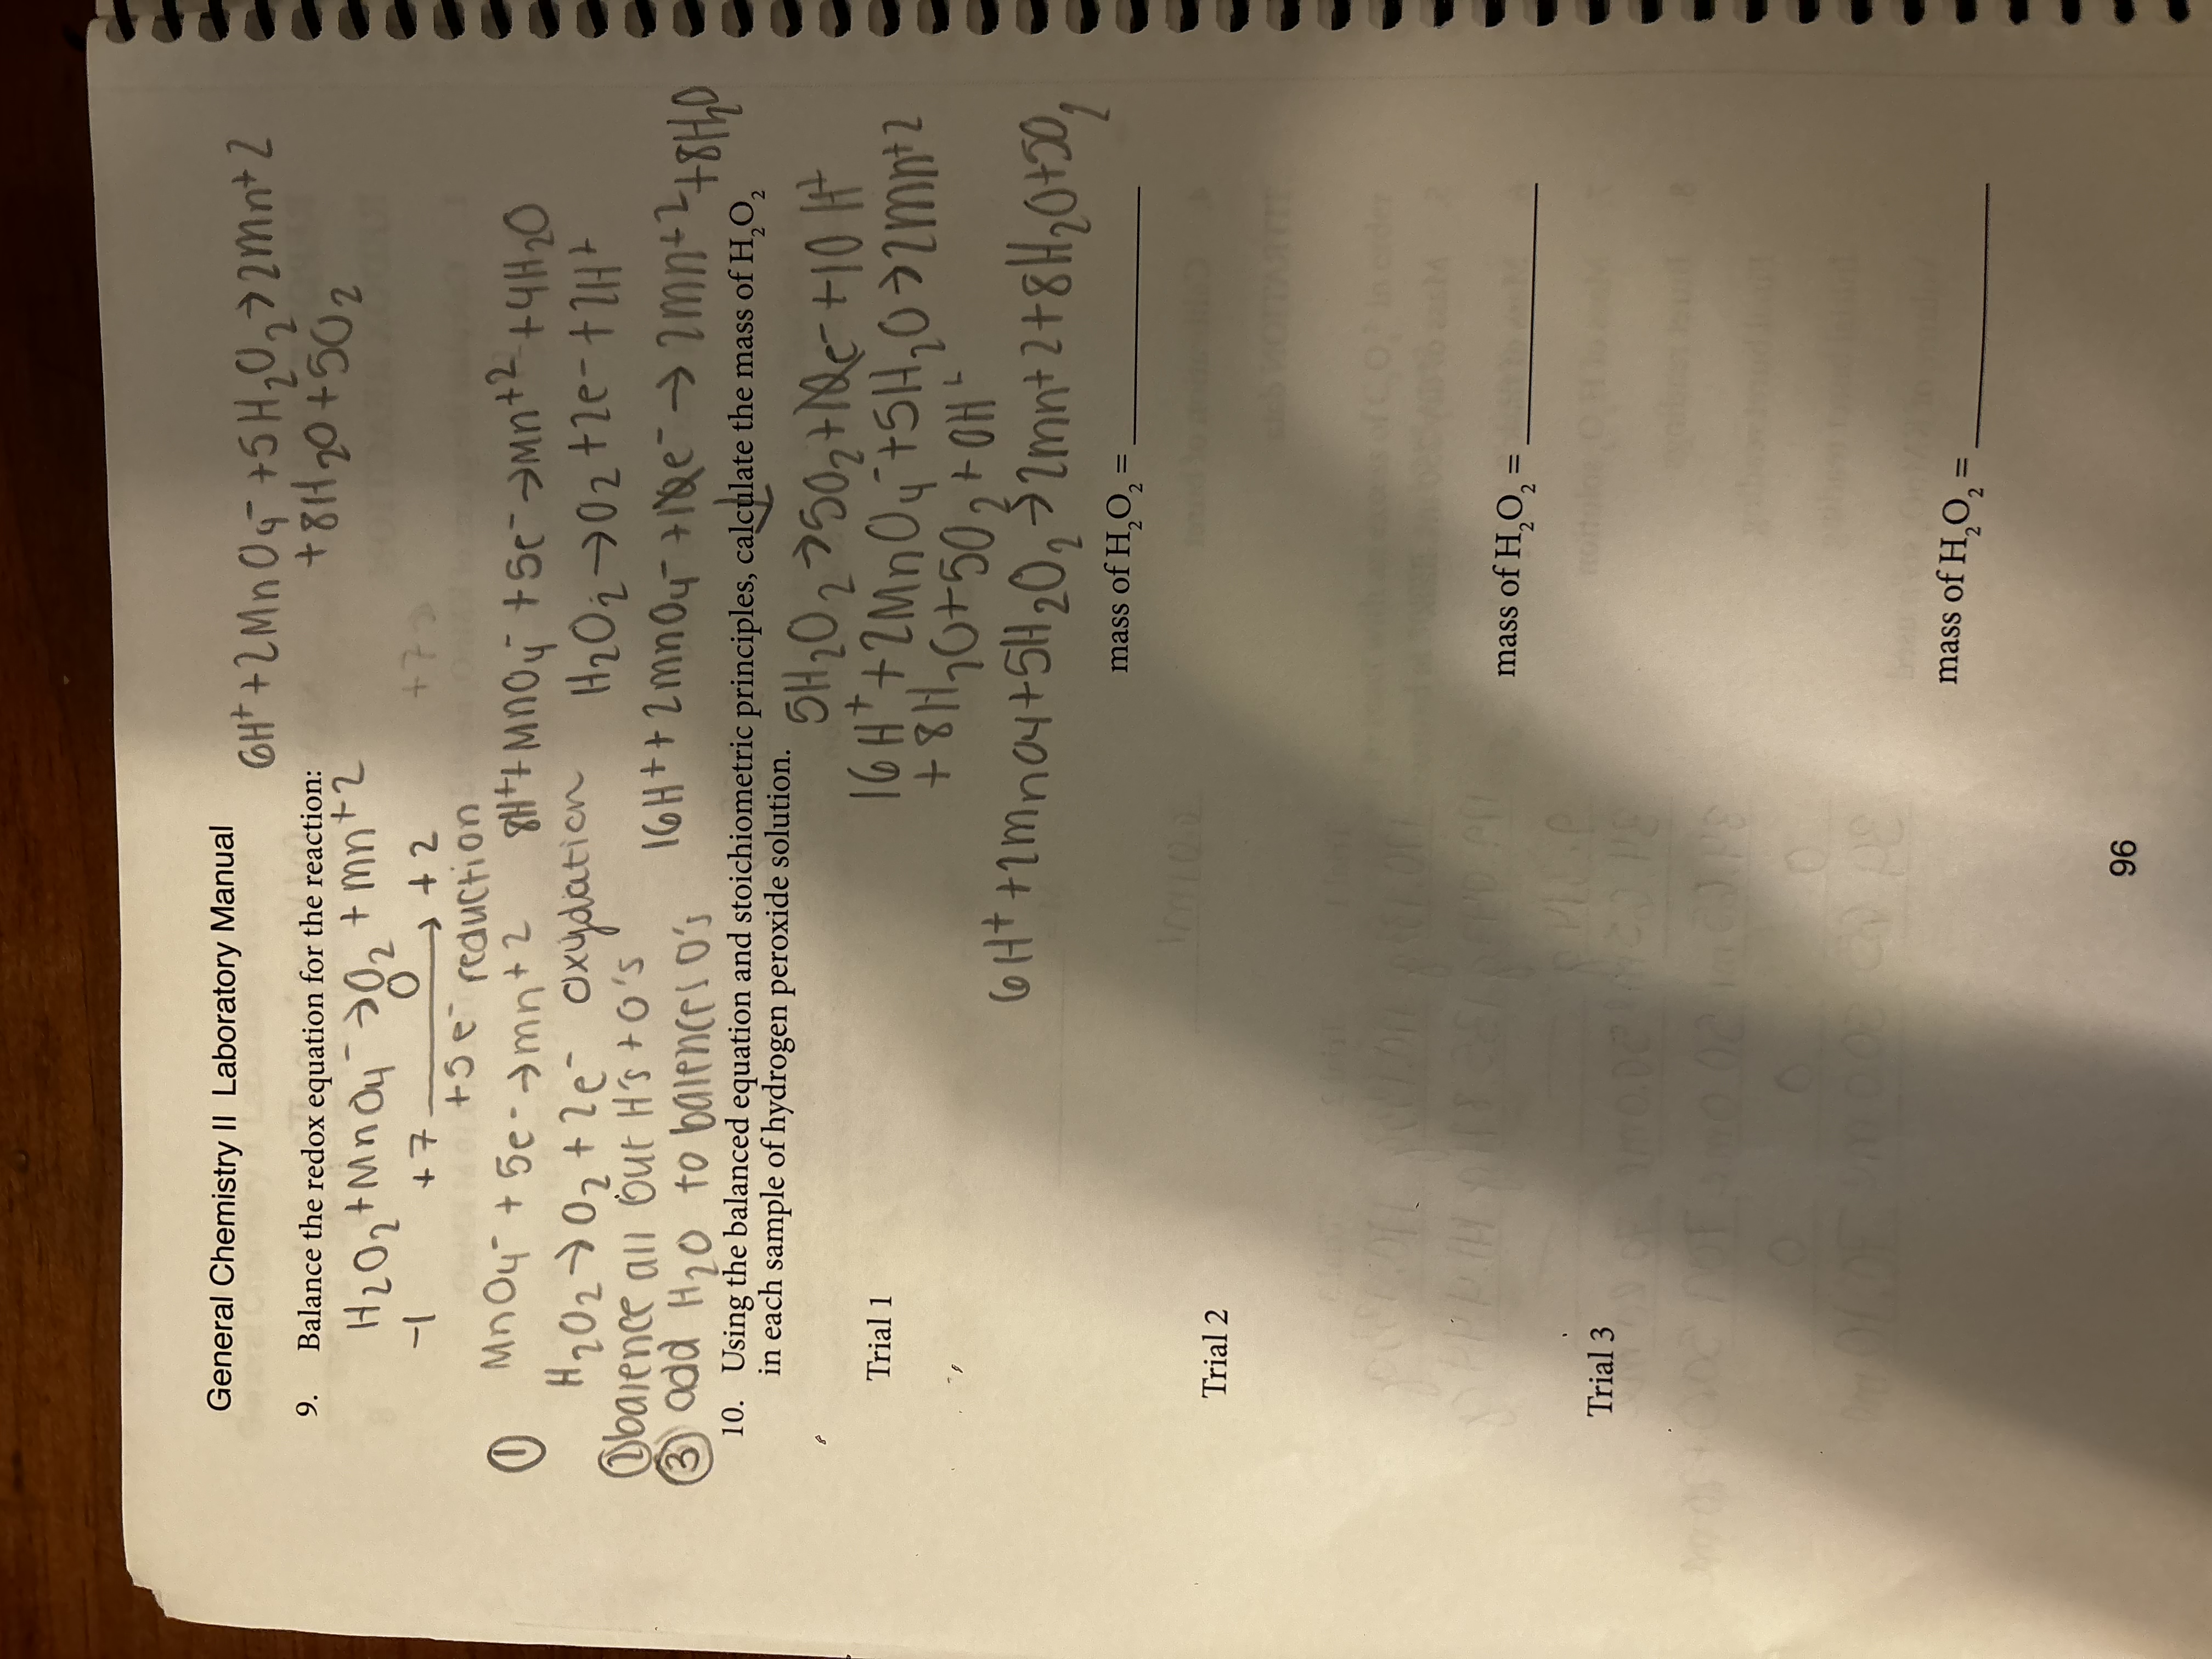 General Chemistry II Laboratory Manual
6H⁺ + 2MnO₄⁻ + 5H₂O₂ → 2Mn+2
+ 8H₂O + 5O₂
9. Balance the redox equation for the reaction:
H₂O₂ + MnO₄⁻ → O₂ + Mn+2
-1 +7 → 0 +2
+7
+5e⁻ reduction
① MnO₄⁻ + 5e⁻ → Mn+2
8H⁺ + MnO₄⁻ + 5e⁻ → Mn+2 + 4H₂O
H₂O₂ → O₂ + 2e⁻ oxydation
H₂O₂ → O₂ + 2e⁻ + 2H⁺
② balence all but H's + O's
③ add H₂O to balence O's
16H⁺ + 2MnO₄⁻ + 10e⁻ → 2Mn+2 + 8H₂O
10. Using the balanced equation and stoichiometric principles, calculate the mass of H₂O₂
in each sample of hydrogen peroxide solution.
5H₂O₂ → 5O₂ + 10e⁻ + 10H⁺
Trial 1
16H⁺ + 2MnO₄⁻ + 5H₂O → 2Mn+2
+ 8H₂O + 5O₂ + 0H⁺
6H⁺ + 2MnO4 + 5H₂O₂ → 2Mn+2 + 8H₂O + 5O₂
mass of H₂O₂ =
Trial 2
mass of H₂O₂ =
Trial 3
mass of H₂O₂ =
96